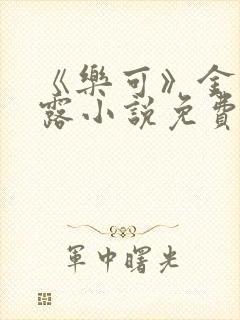 《樂可》金
露小說免費
軍中曙光